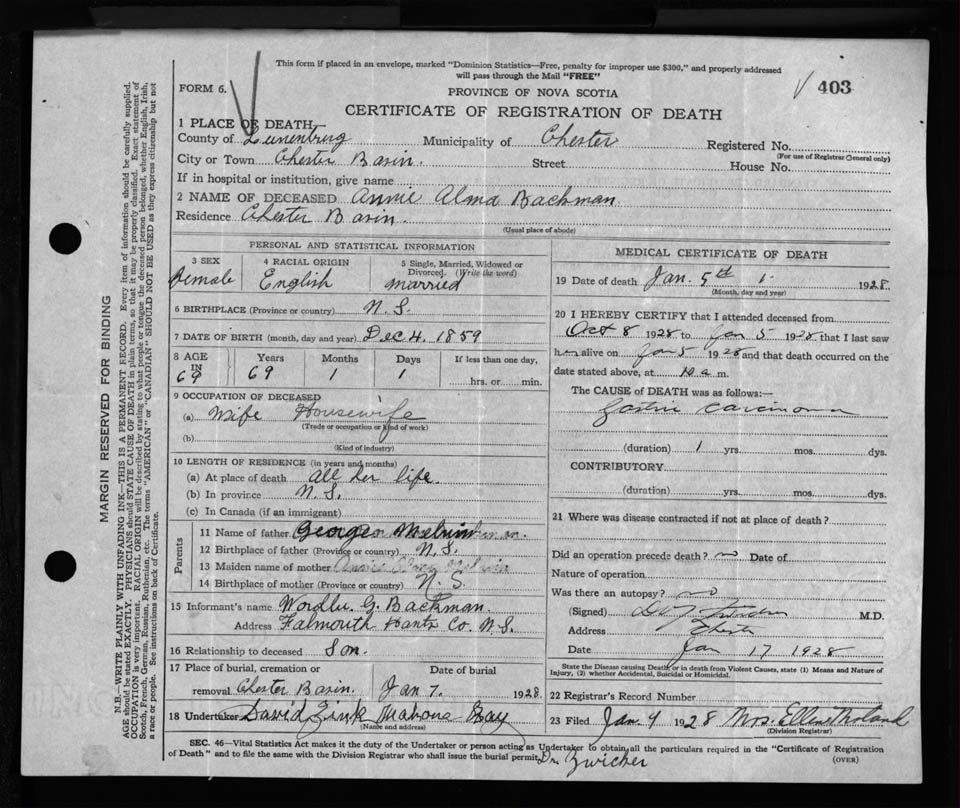 This form if placed in an envelope, marked "Dominion Statistics—Free, penalty for improper use $300," and properly addressed
will pass through the Mail "FREE"
FORM 6.
PROVINCE OF NOVA SCOTIA
403
CERTIFICATE OF REGISTRATION OF DEATH
1 PLACE OF DEATH—
County of Lunenburg Municipality of Chester Registered No.
(For use of Registrar General only)
City or Town Chester Basin. Street House No.
If in hospital or institution, give name
2 NAME OF DECEASED Annie Alma Bachman
Residence Chester Basin.
(Usual place of abode)
PERSONAL AND STATISTICAL INFORMATION
3 SEX 4 RACIAL ORIGIN 5 Single, Married, Widowed or
Divorced. (Write the word)
Female English married
6 BIRTHPLACE (Province or country) N.S.
7 DATE OF BIRTH (month, day and year) Dec 4. 1859
8 AGE IN Years Months Days If less than one day,
69 69 1 1 hrs. or min.
9 OCCUPATION OF DECEASED
(a) Wife Housewife
(Trade or occupation or kind of work)
(b)
(Kind of industry)
10 LENGTH OF RESIDENCE (in years and months)
(a) At place of death all her life.
(b) In province N.S.
(c) In Canada (if an immigrant)
Parents
11 Name of father George
12 Birthplace of father (Province or country) N.S.
13 Maiden name of mother
14 Birthplace of mother (Province or country) N.S
15 Informant's name G. Bachman.
Address Falmouth Hants Co. N.S.
16 Relationship to deceased Son.
17 Place of burial, cremation or Date of burial
removal Chester Basin. Jan 7. 1928
18 Undertaker David Zink Mahone Bay
(Name and address)
MEDICAL CERTIFICATE OF DEATH
19 Date of death Jan. 5th 1928
(Month, day and year)
20 I HEREBY CERTIFY that I attended deceased from
Oct 8 1928 to Jan 5 1928, that I last saw
her alive on Jan 5 1928 and that death occurred on the
date stated above, at 10 a m.
The CAUSE of DEATH was as follows:
Gastric carcinoma
(duration) 1 yrs. mos. dys.
CONTRIBUTORY
(duration) yrs. mos. dys.
21 Where was disease contracted if not at place of death?
Did an operation precede death? no Date of
Nature of operation
Was there an autopsy? no
(Signed) M.D.
Address Chester
Date Jan 17 1928
State the Disease causing Death, or in death from Violent Causes, state (1) Means and Nature of
Injury, (2) whether Accidental, Suicidal or Homicidal.
22 Registrar's Record Number
23 Filed Jan. 9 1928 Mrs. Ellen
(Division Registrar)
SEC. 46—Vital Statistics Act makes it the duty of the Undertaker or person acting as Undertaker to obtain all the particulars required in the "Certificate of Registration
of Death" and to file the same with the Division Registrar who shall issue the burial permit.
Dr. Zwicker
(OVER)
MARGIN RESERVED FOR BINDING
N.B.—WRITE PLAINLY WITH UNFADING INK—THIS IS A PERMANENT RECORD. Every item of information should be carefully supplied.
AGE should be stated EXACTLY. PHYSICIANS should STATE CAUSE OF DEATH in plain terms, so that it may be properly classified. Exact statement of
OCCUPATION is very important. RACIAL ORIGIN will be described by stating to what people or tongue the deceased person belonged, whether English, Irish,
Scotch, French, German, Russian, Ruthenian, etc. The terms "AMERICAN" or "CANADIAN" SHOULD NOT BE USED as they express citizenship but not
a race or people. See instructions on back of Certificate.